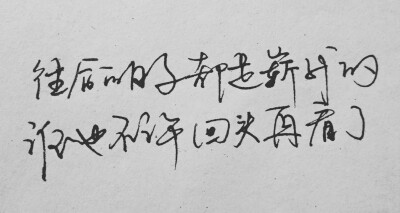 往后的日子都是崭新的
谁也不许回头再看了